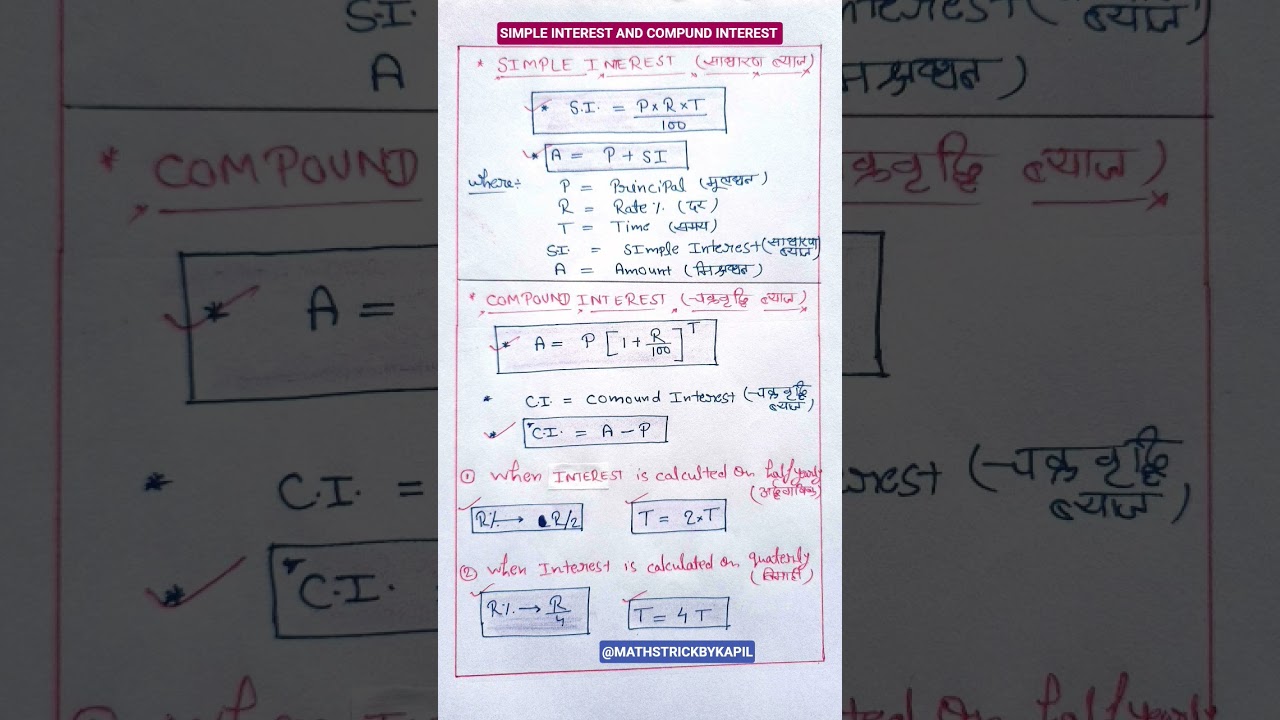 SIMPLE INTEREST AND COMPUND INTEREST
* SIMPLE INTEREST (साधारण ब्याज)
* S.I. = P×R×T/100
* A = P + SI
where:
P = Principal (मूलधन)
R = Rate% (दर)
T = Time (समय)
S.I. = SImple Interest (साधारण ब्याज)
A = Amount (मिश्रधन)
* COMPOUND INTEREST (चक्रवृद्धि ब्याज)
* A = P [1 + R/100]^T
* C.I. = Comound Interest (चक्रवृद्धि ब्याज)
* C.I. = A - P
① When INTEREST is calculted on halfyearly (अर्द्धवार्षिक)
R% → R/2
T = 2×T
② When Interest is calculated on quaterly
R% → R/4
T = 4 T
@MATHSTRICKBYKAPIL